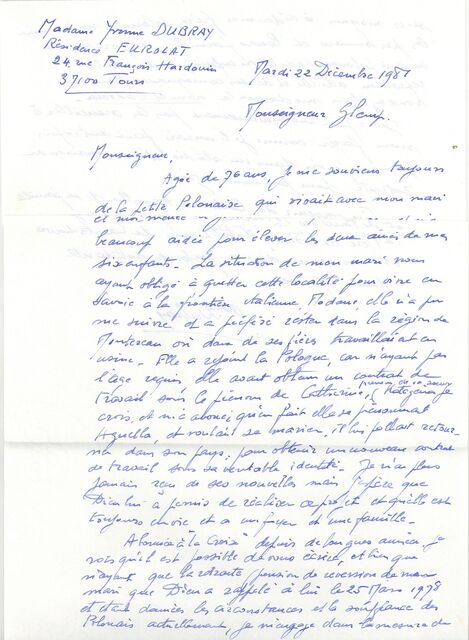 Madame Yvonne DUBRAY
Résidence EUROLAT
24, rue François Hardouin
37100 Tours
Mardi 22 Décembre 1981
Monseigneur Glemp.
Monseigneur,
Agée de 76 ans, je me souviens toujours
de la petite Polonaise qui vivait avec mon mari
et moi-même
beaucoup aidée pour élever les deux aînés de mes
six enfants. La situation de mon mari nous
ayant obligé à quitter cette localité pour vivre en
Savoie à la frontière italienne, Modane, elle n'a pu
me suivre et a préféré rester dans la région de
Montereau où deux de ses frères travaillaient en
usine. Elle a rejoint la Pologne, car n'ayant pas
l'âge requis, elle avait obtenu un contrat de
travail sous le prénom de Catherine, (Katazena je
prénom de sa soeur
crois, et m'a avoué qu'en fait elle se prénommait
Aquella, et voulait se marier, il lui fallait retour-
ner dans son pays, pour obtenir un nouveau contrat
de travail sous sa véritable identité. Je n'ai plus
jamais reçu de ses nouvelles mais j'espère que
Dieu lui a permis de réaliser ce projet et qu'elle est
toujours en vie et a un foyer et une famille.
Abonnée à "La Croix" depuis de longues années, je
vois qu'il est possible de vous écrire, et bien que
n'ayant que la retraite pension de reversion de mon
mari que Dieu a rappelé à lui le 25 Mars 1978
et étant données les circonstances et la souffrance des
Polonais actuellement, je m'engage dans la mesure de